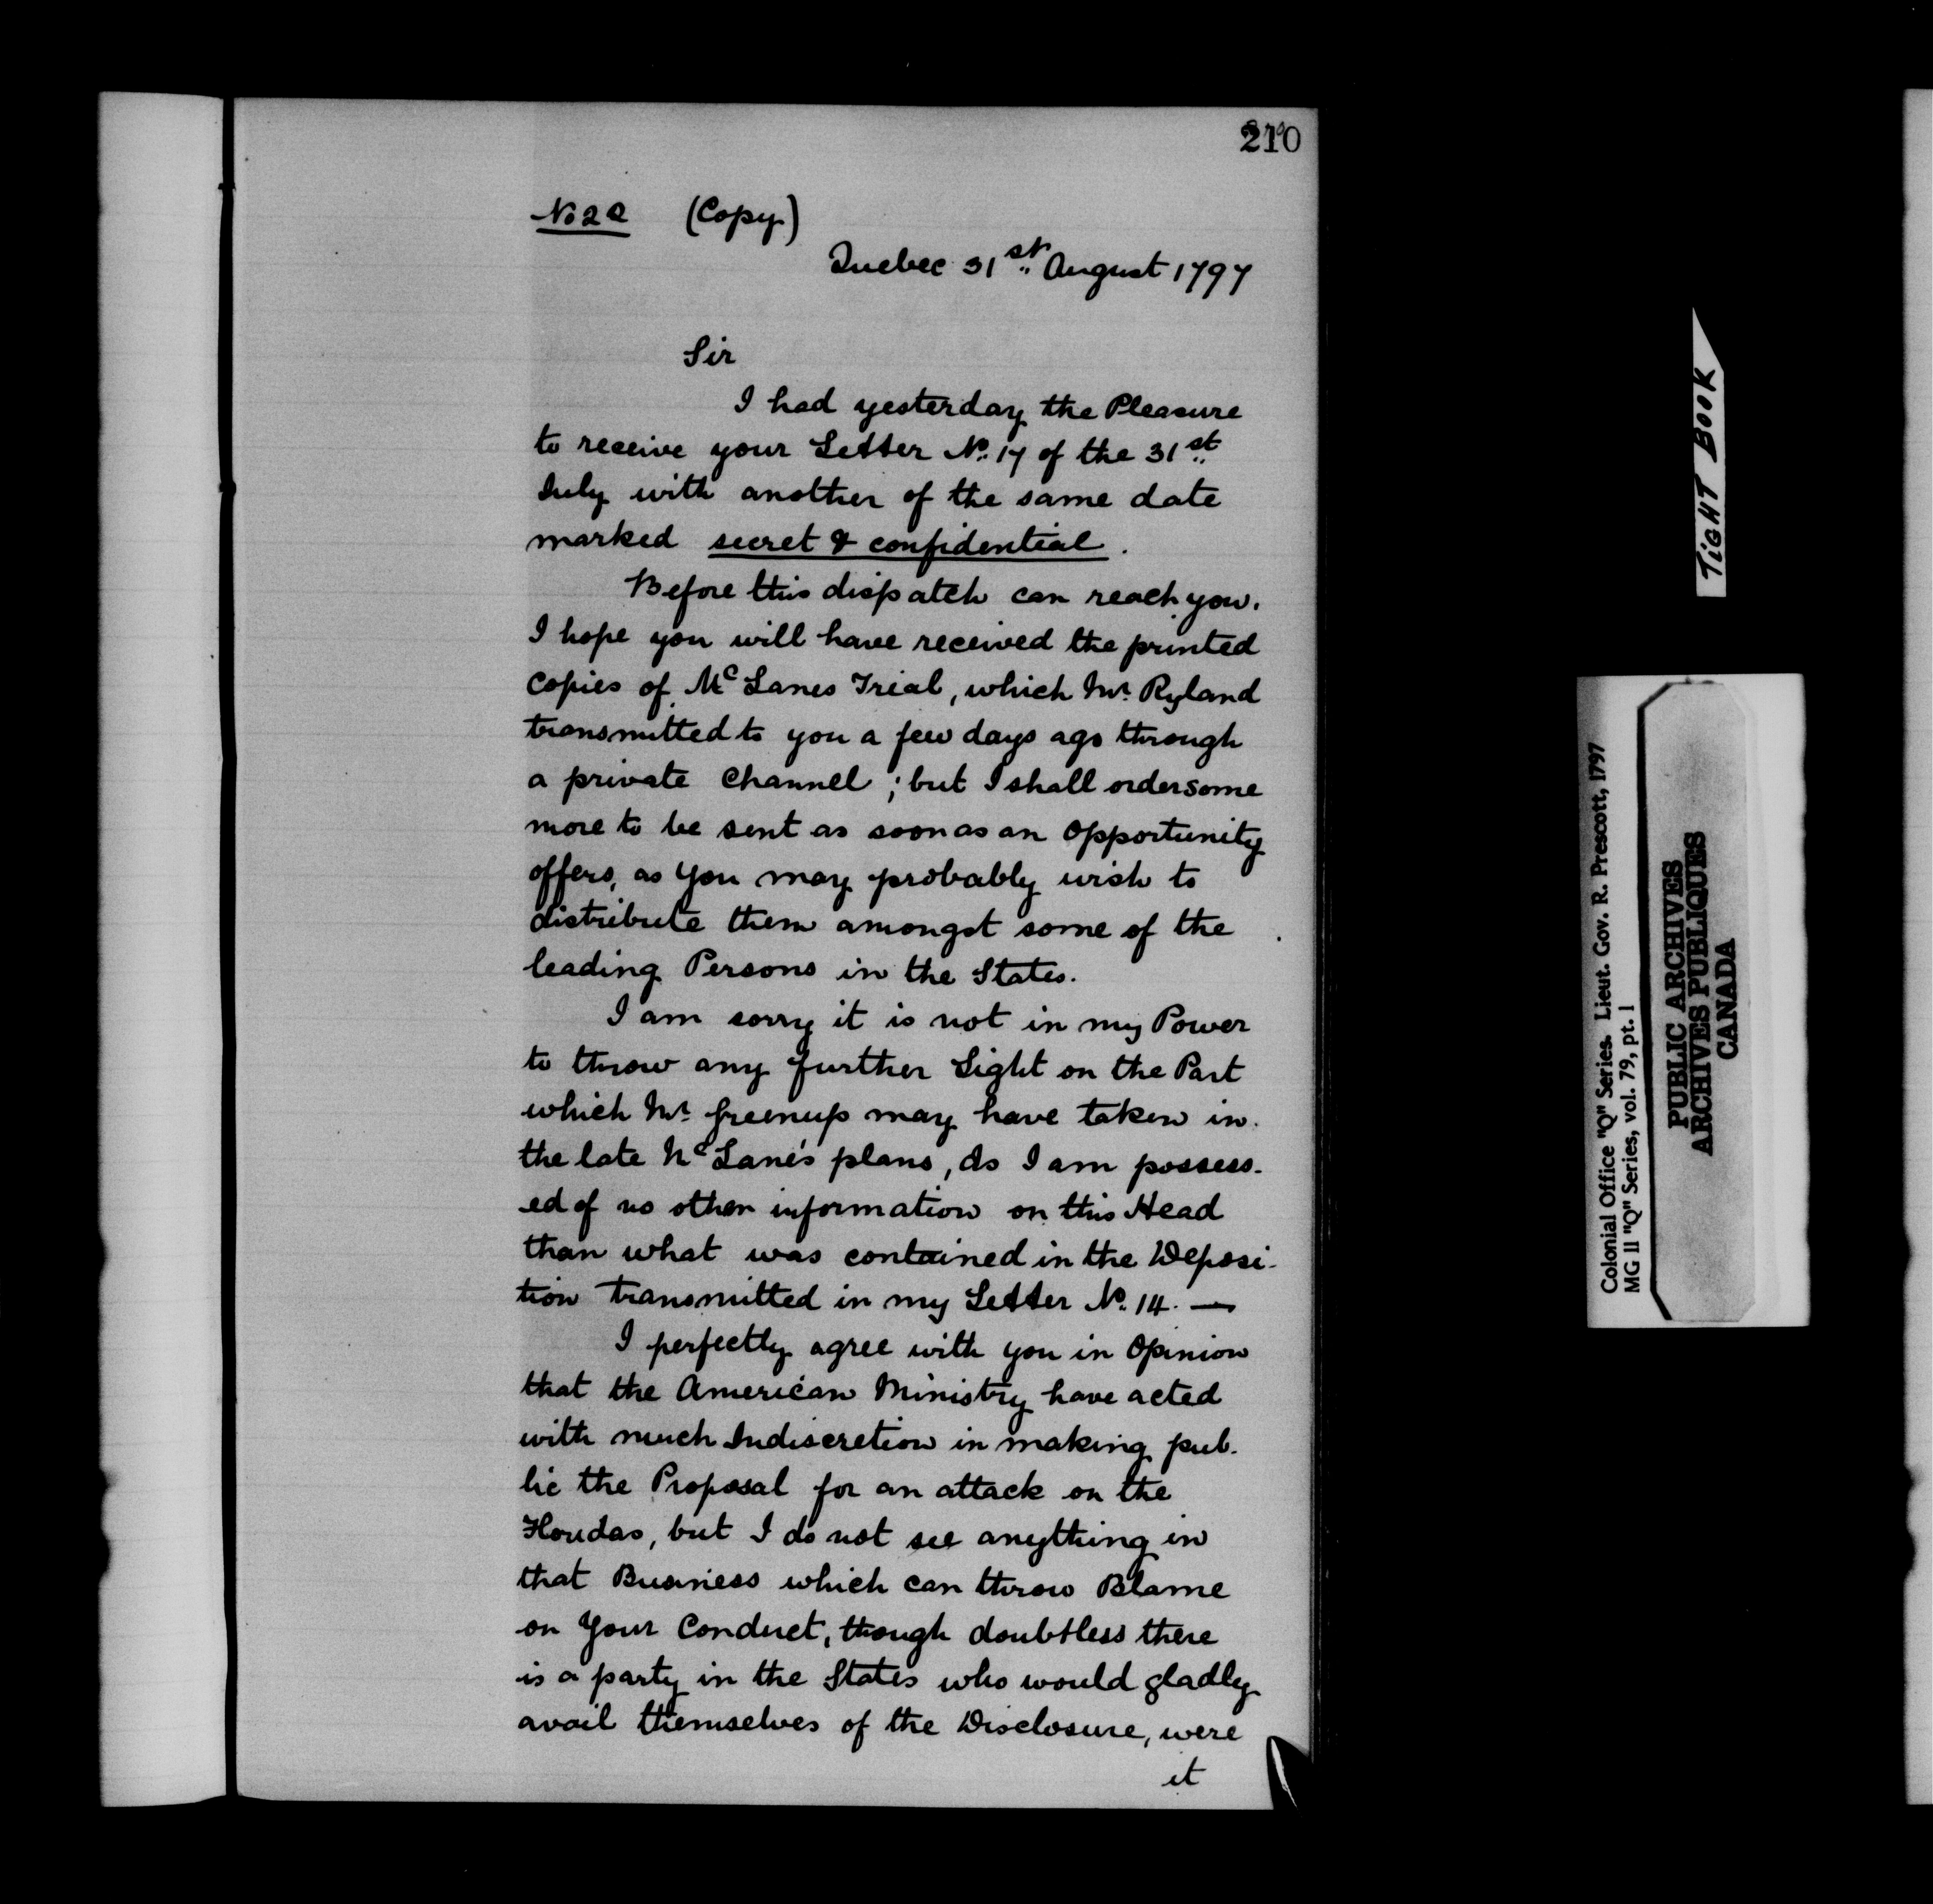 210
No 20 (Copy)
Quebec 31st August 1797
Sir
I had yesterday the Pleasure
to receive your Letter No. 17 of the 31st
July with another of the same date
marked secret & confidential.
Before this dispatch can reach you,
I hope you will have received the printed
copies of McLanes Trial, which Mr. Ryland
transmitted to you a few days ago through
a private Channel; but I shall order some
more to be sent as soon as an Opportunity
offers, as You may probably wish to
distribute them amongst some of the
leading Persons in the States.
I am sorry it is not in my Power
to throw any further Light on the Part
which Mr. Greenup may have taken in
the late McLane's plans, As I am possess-
ed of no other information on this Head
than what was contained in the Deposi-
tion transmitted in my Letter No. 14. —
I perfectly agree with you in Opinion
that the American Ministry have acted
with much Indiscretion in making pub-
lic the Proposal for an attack on the
Floridas, but I do not see anything in
that Business which can throw Blame
on Your Conduct, though doubtless there
is a party in the States who would gladly
avail themselves of the Disclosure, were
it
TIGHT BOOK
Colonial Office "Q" Series. Lieut. Gov. R. Prescott, 1797
MG 11 "Q" Series, vol. 79, pt. 1
PUBLIC ARCHIVES
ARCHIVES PUBLIQUES
CANADA